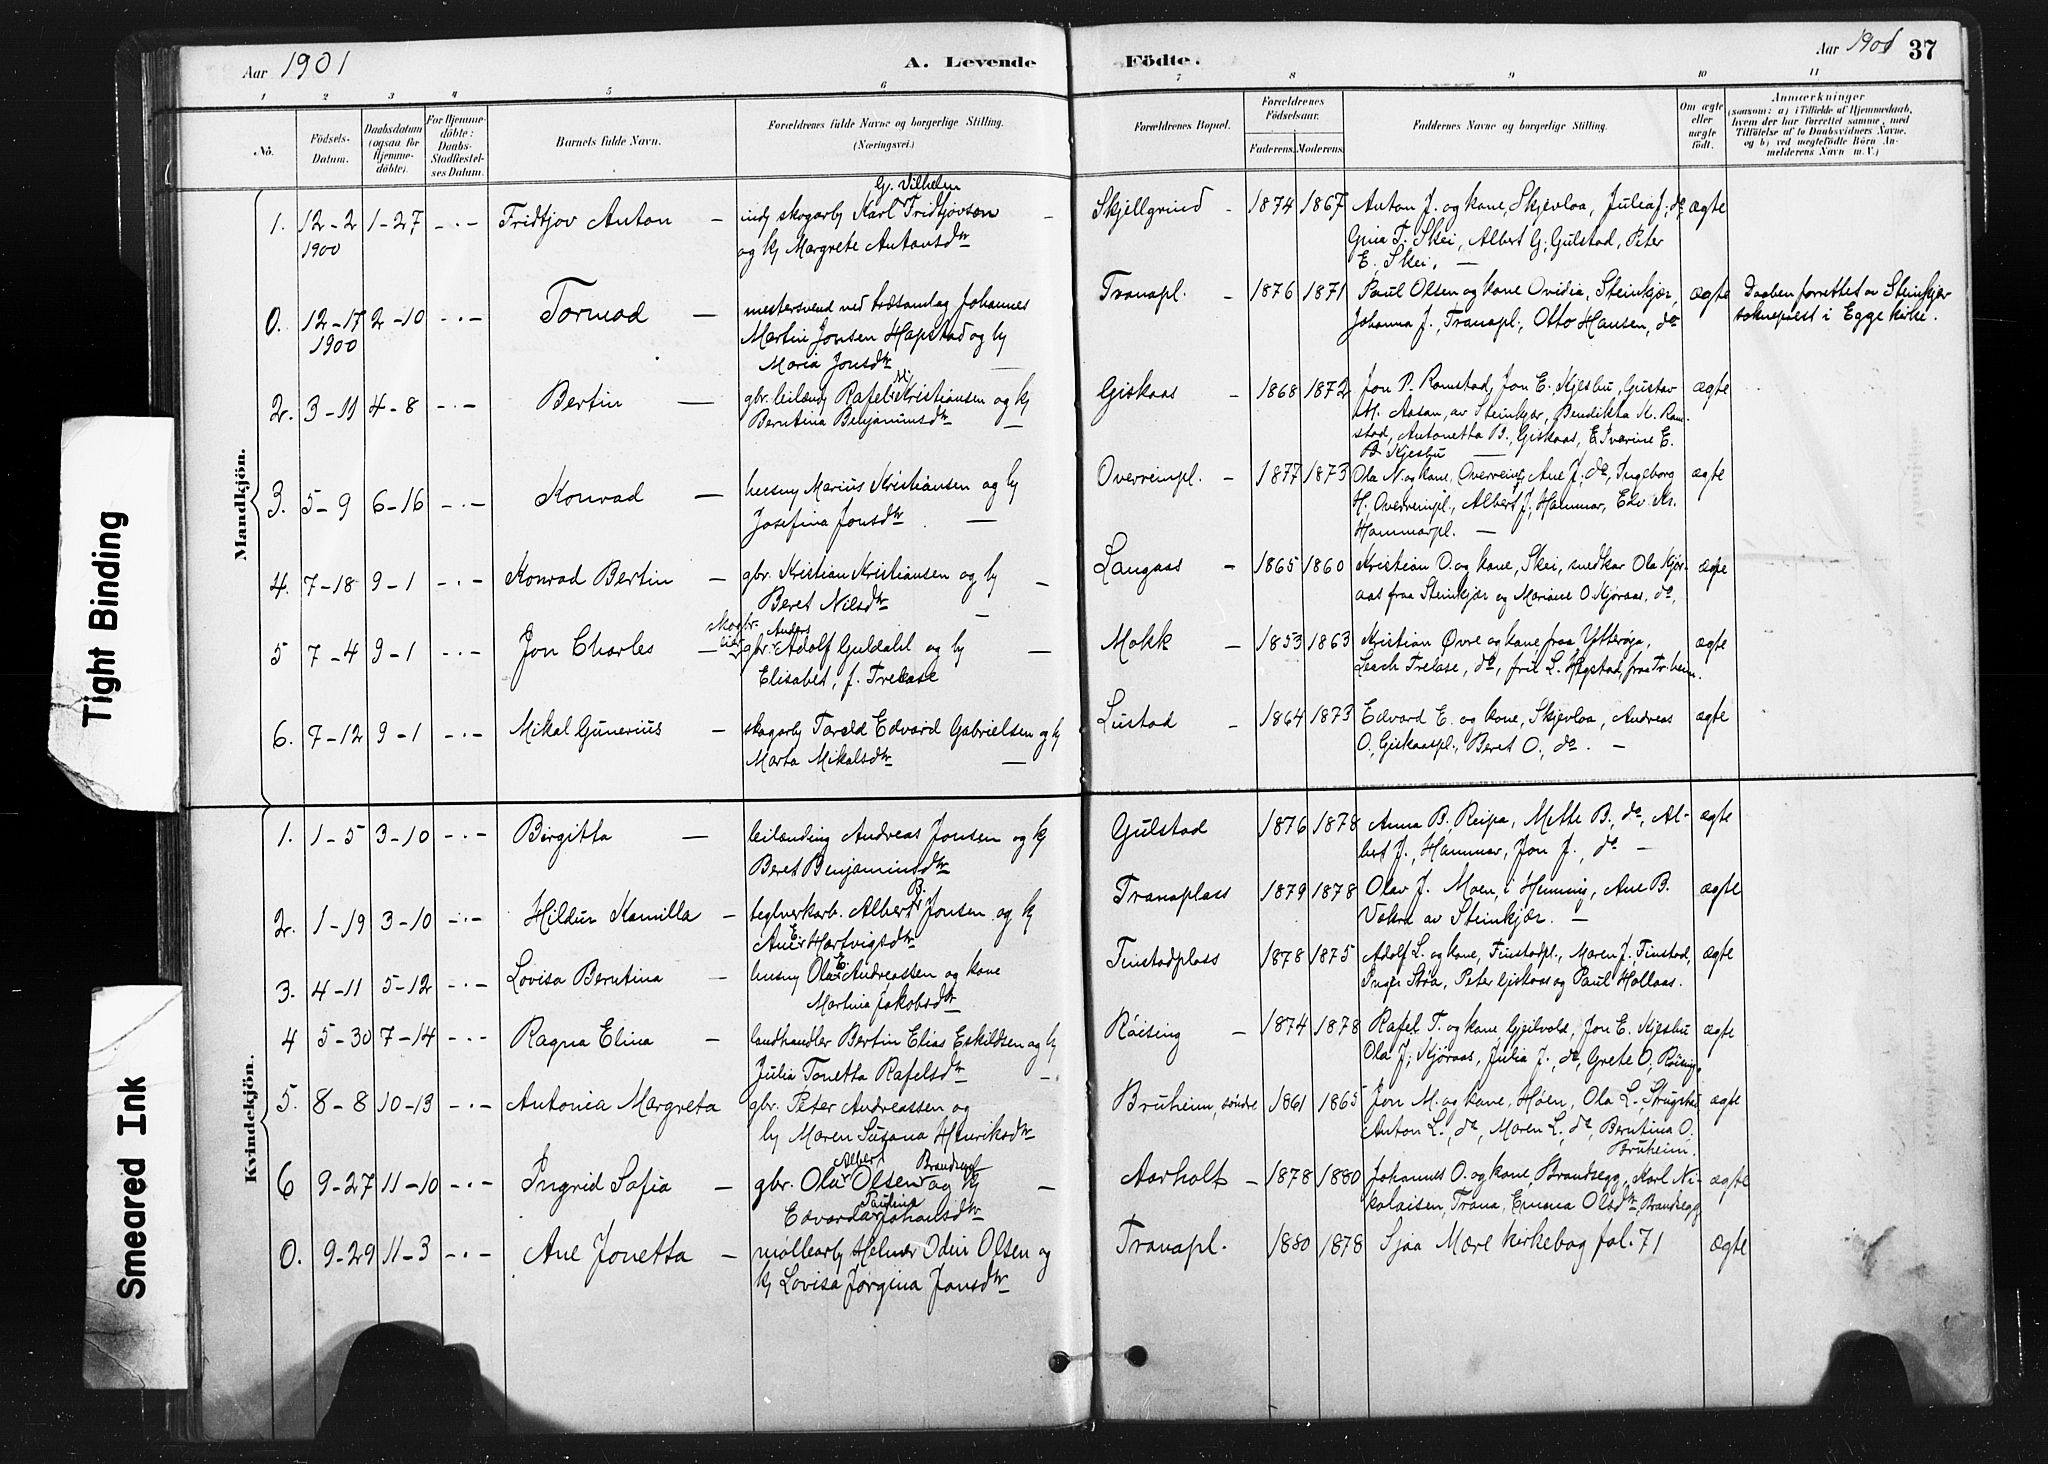 Aar 1901
A. Levende Födte.
Aar 1901 37
1 2 3 4 5 6 7 8 9 10 11
No.
Födsels-Datum.
Daabsdatum (ogsaa for Hjemmedöbte).
For Hjemmedöbte: Daabs-Stadfæstelses Datum.
Barnets fulde Navn.
Forældrenes fulde Navne og borgerlige Stilling. (Næringsvei.)
Forældrenes Bopæl.
Forældrenes Födselsaar.
Faderens. Moderens.
Faddernes Navne og borgerlige Stilling.
Om ægte eller uægte födt.
Anmærkninger
(saasom: a) i Tilfælde af Hjemmedaab, hvem der har forrettet samme, med Tilföielse af to Daabsvidners Navne, og b) ved uægtefödte Börn Anmelderens Navn m. V.)
Mandkjön.
1. 12-2 1900 1-27 -.- Fridtjov Anton - indr skogarb Karl G. Vilhelm Fridtjovson
og kj Margrete Antonsdtr
Skjellgrind - 1874 1867 Anton J. og kone, Skjevloa, Julia J. do ægte
Gina T. Skei, Albert G. Gulstad, Peter
E. Skei. -
0. 12-17 1900 2-10 -.- Tormod - mestersvend ved træsamlag Johannes
Martin Jonsen Hapstad og kj
Maria Jonsdtr -
Tranapl. - 1876 1871 Paul Olsen og kone Ovidia, Steinkjær, ægte
Johanna J., Tranapl., Otto Hansen, do
Daaben forrettet av Steinkjær
soknepræst i Egge kirke.
2. 3-11 4-8 -.- Bertin - gbr. leilænd Rafel M. Kristiansen og kj
Berntina Benjaminsdtr -
Giskaas - 1868 1872 Jon P. Ramstad, Jon E. Kjesbu, Gustav
M. Aasan, av Steinkjær, Bendikta N. Ram-
stad, Antonetta B., Giskaas, Iverine E.
Kjesbu - ægte
3. 5-9 6-16 -.- Konrad - husmy Marius Kristiansen og kj
Josefina Jonsdtr. -
Overreinpl. - 1877 1873 Ola N. og kone, Overrein, Ane J. do, Ingeborg
H., Overreinpl., Albert J., Hammer, Edv. Kr.
Hammerpl. - ægte
4. 7-18 9-1 -.- Konrad Bertin - gbr. Kristian Kristiansen og kj -
Beret Nilsdtr -
Langaas - 1865 1860 Kristian O. og kone, Skei, smedkar Ola Kjør-
aas fraa Steinkjær og Mariane O. Kjøraas, do. ægte
5 7-4 9-1 -.- Jon Charles - gbr. Anders Adolf Guldahl og kj -
Elisabet, f. Trelase
Mokk - 1853 1863 Kristian Øvre og kone fraa Ytterøya,
Leach Trelase, do, frk L. Hegstad, fraa Tr.heim. ægte
6. 7-12 9-1 -.- Mikal Gunerius - skogarb Tarald Edvard Gabrielsen og kj
Marta Mikalsdtr -
Lustad - 1864 1873 Edvard E. og kone, Skjevloa, Andreas
O., Giskaaspl., Beret O., do. - ægte
Kvindekjön.
1. 1-5 3-10 -.- Birgitta - leilænding Andreas Jonsen og kj
Beret Benjaminsdtr
Gulstad 1876 1878 Anna B. Reipa, Mette B., do, Al-
bert J., Hammer, Jon J., do - ægte
2. 1-19 3-10 -.- Hildur Kamilla - teglverkarb. Albert B. Jonsen og kj
Ane E. Hartvigsdtr
Tranaplass 1879 1878 Olav J. Moen, i Henning, Ane B.
Vekre av Steinkjær. - ægte
3. 4-11 5-12 -.- Lovisa Berntina - husmy Ola E. Andreassen og kone
Martina Jakobsdtr
Tinstadplass 1878 1875 Adolf L. og kone, Tinstadpl., Maren J. Tinstad,
Inger Støa, Peter Giskaas og Paul Hollaas. ægte
4 5-30 7-14 -.- Ragna Elina - landhandler Bertin Elias Eskildsen og kj
Julia Tonetta Rafelsdtr -
Røising - 1874 1878 Rafel T. og kone Gjeilvold, Jon E. Kjesbu
Ola J., Kjøraas, Julia J., do, Grete O., Røising. ægte
5. 8-8 10-13 -.- Antonia Margreta gbr. Peter Andreassen og
kj Maren Susana Henriksdtr
Bruheim, søndre 1861 1865 Jon M. og kone, Høen, Ola L. Strugstad
Anton L., do, Maren L., do, Berntina O.
Bruheim. ægte
6 9-27 11-10 -.- Ingrid Sofia - gbr. Ola Albert Olsen Brandsegg og kj -
Edvarda Paulina Johansdtr
Aarholt - 1878 1880 Johannes O. og kone, Brandsegg, Karl Ni-
kolaisen, Trana, Emma Olsdtr, Brandsegg ægte
0. 9-29 11-3 -.- Ane Jonetta - møllearb Helmer Odin Olsen og
kj Lovisa Jørgina Jonsdtr
Tranapl. 1880 1878 Sjaa Mære kirkebog fol. 71 ægte
Tight Binding
Smeared Ink